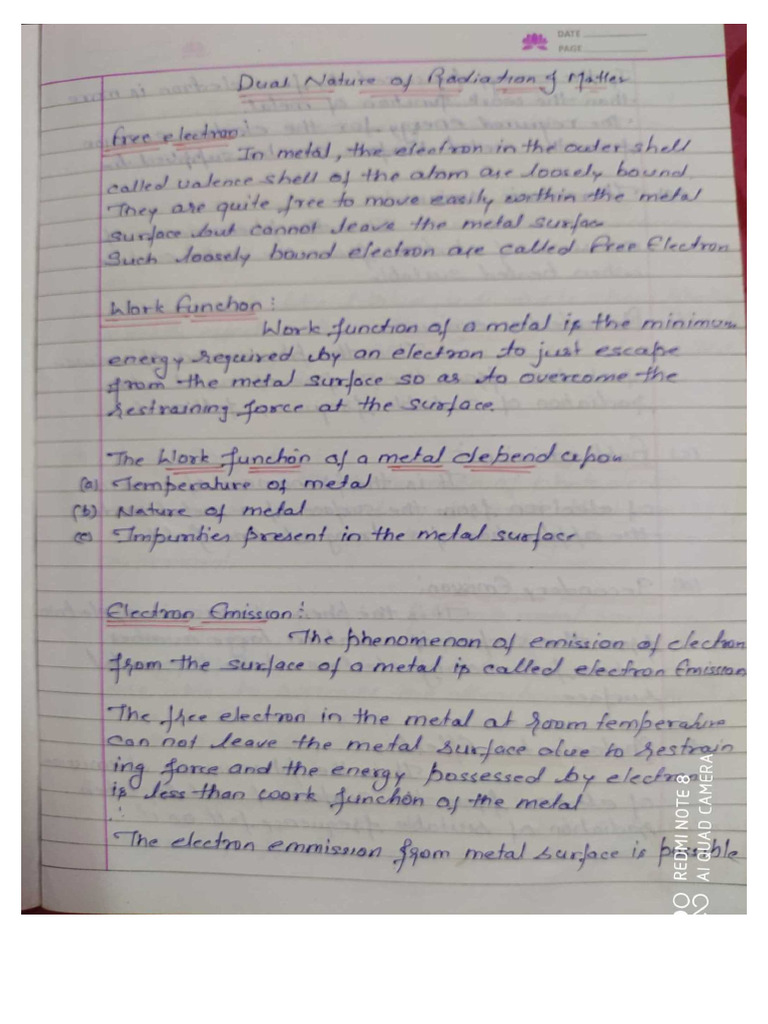 DATE
PAGE
Dual Nature of Radiation & Matter
Free electron:
In metal, the electron in the outer shell
called valence shell of the atom are loosely bound.
They are quite free to move easily within the metal
surface but cannot leave the metal surface
Such loosely bound electron are called Free Electron
Work Function:
Work function of a metal is the minimum
energy required by an electron to just escape
from the metal surface so as to overcome the
restraining force at the surface.
The Work function of a metal depend upon
(a) Temperature of metal
(b) Nature of metal
(c) Impurities present in the metal surface
Electron Emission:
The phenomenon of emission of electron
from the surface of a metal is called electron Emission
The free electron in the metal at room temperature
can not leave the metal surface due to restrain
ing force and the energy possessed by electron
is less than work function of the metal
∴
The electron emmission from metal surface is possible
REDMI NOTE 8
AI QUAD CAMERA